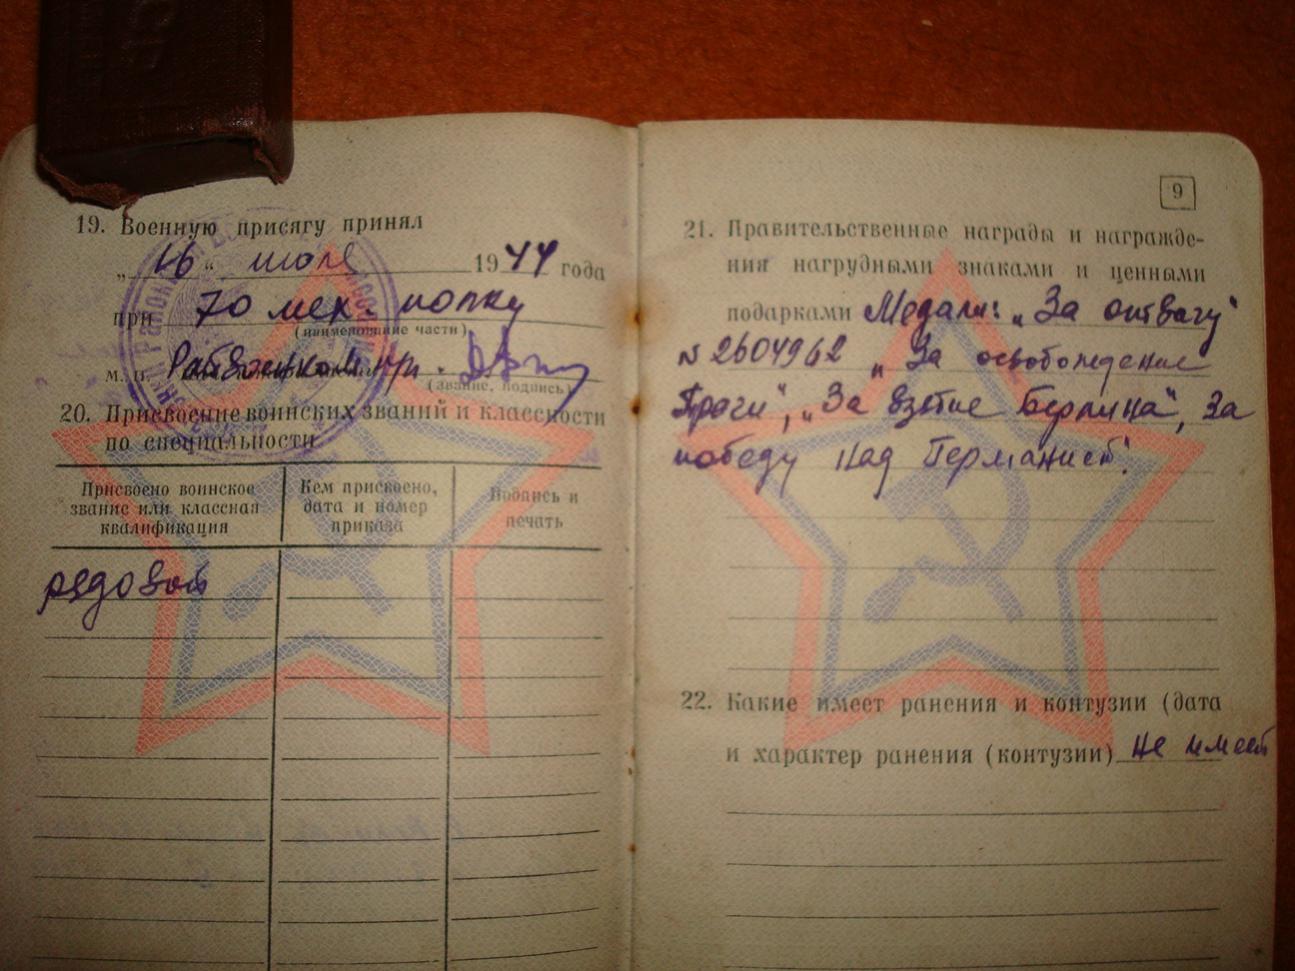 19. Военную присягу принял
„16“ июля 1944 года
при 70 мех. полку
(наименование части)
м. п. Райвоенком
(звание, подпись)
20. Присвоение воинских званий и классности
по специальности
Присвоено воинское
звание или классная
квалификация
Кем присвоено,
дата и номер
приказа
Подпись и
печать
рядовой
9
21. Правительственные награды и награжде-
ния нагрудными знаками и ценными
подарками Медали: „За отвагу“
№ 2604962 „За освобождение
Праги“, „За взятие Берлина“, За
победу над Германией“.
22. Какие имеет ранения и контузии (дата
и характер ранения (контузии) не имеет